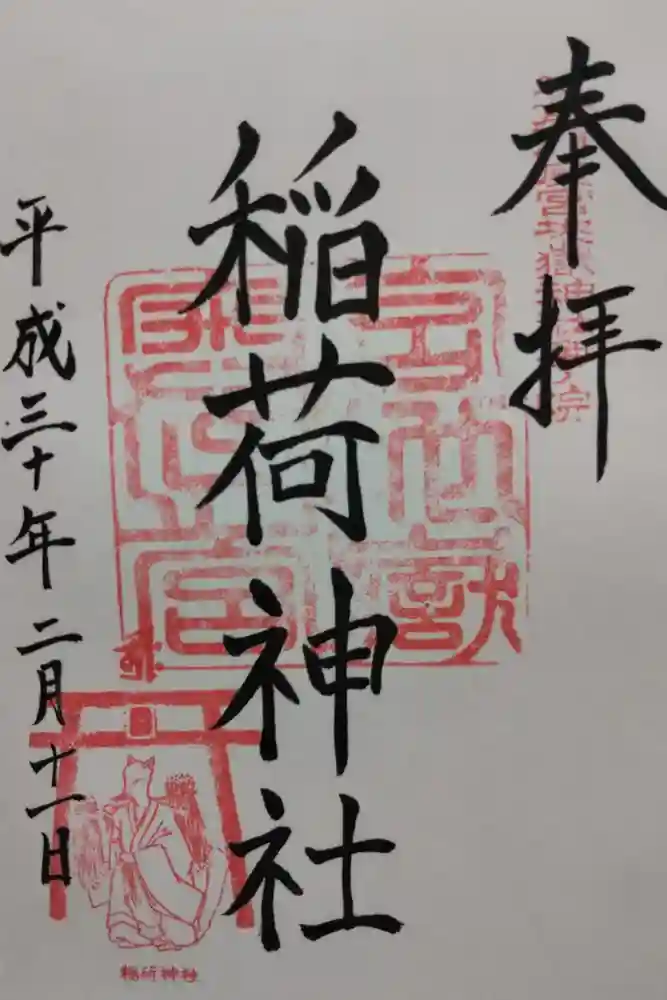 奉拝
稲荷神社
平成三十年二月十一日
稲荷神社